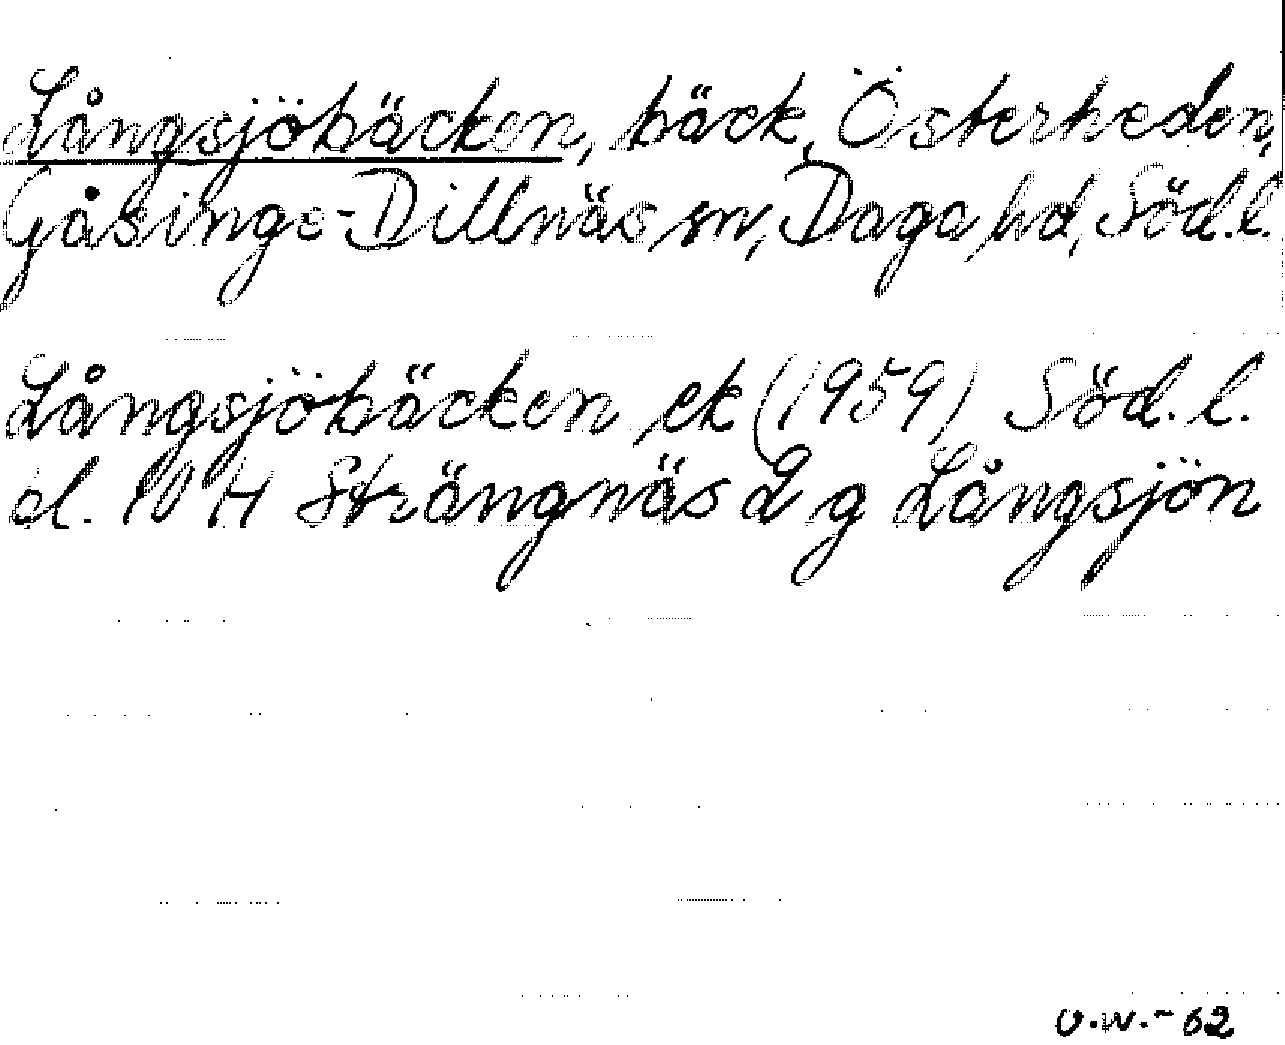 Långsjöbäcken, bäck, Österheden,
Gåsinge-Dillnäs sn, Daga hd, Söd.l.
Långsjöbäcken ek (1959) Söd. l.
bl. 10 H Strängnäs 2 g Långsjön
O.W.-62